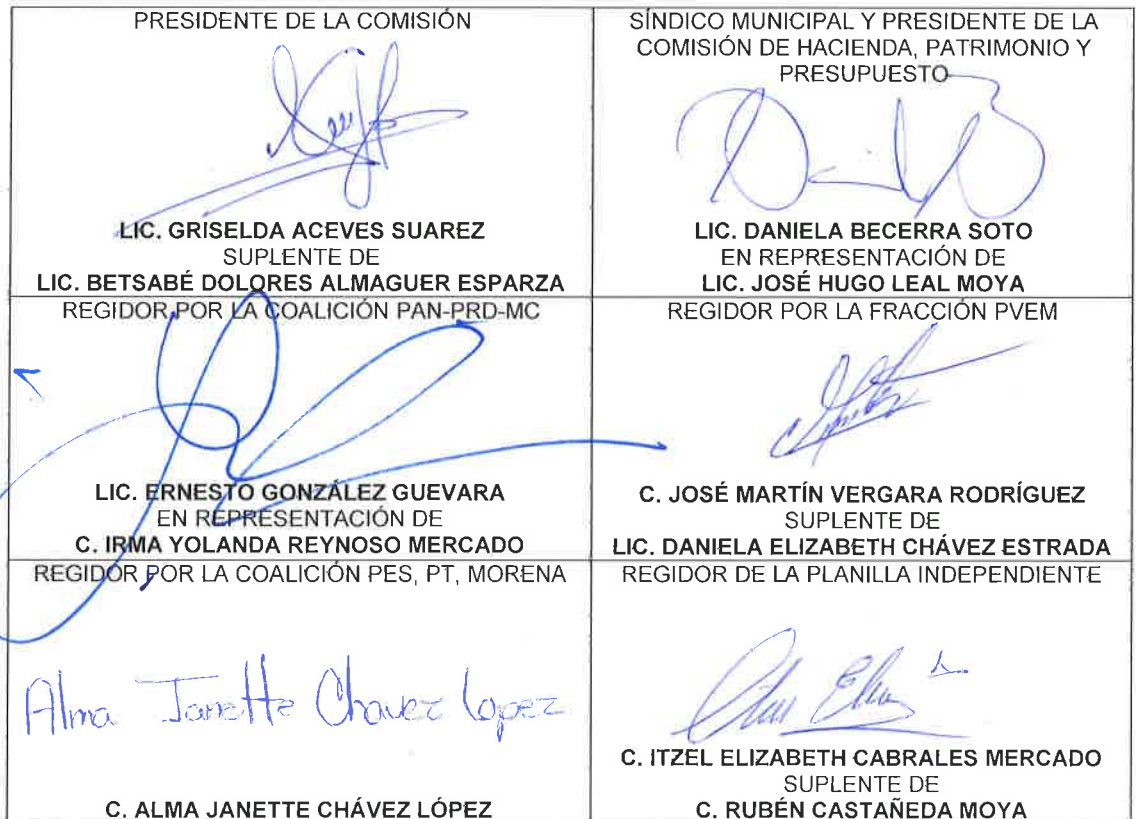 PRESIDENTE DE LA COMISIÓN
LIC. GRISELDA ACEVES SUAREZ
SUPLENTE DE
LIC. BETSABÉ DOLORES ALMAGUER ESPARZA
SÍNDICO MUNICIPAL Y PRESIDENTE DE LA
COMISIÓN DE HACIENDA, PATRIMONIO Y
PRESUPUESTO
LIC. DANIELA BECERRA SOTO
EN REPRESENTACIÓN DE
LIC. JOSÉ HUGO LEAL MOYA
REGIDOR POR LA COALICIÓN PAN-PRD-MC
LIC. ERNESTO GONZÁLEZ GUEVARA
EN REPRESENTACIÓN DE
C. IRMA YOLANDA REYNOSO MERCADO
REGIDOR POR LA FRACCIÓN PVEM
C. JOSÉ MARTÍN VERGARA RODRÍGUEZ
SUPLENTE DE
LIC. DANIELA ELIZABETH CHÁVEZ ESTRADA
REGIDOR POR LA COALICIÓN PES, PT, MORENA
Alma Janette Chavez Lopez
C. ALMA JANETTE CHÁVEZ LÓPEZ
REGIDOR DE LA PLANILLA INDEPENDIENTE
C. ITZEL ELIZABETH CABRALES MERCADO
SUPLENTE DE
C. RUBÉN CASTAÑEDA MOYA